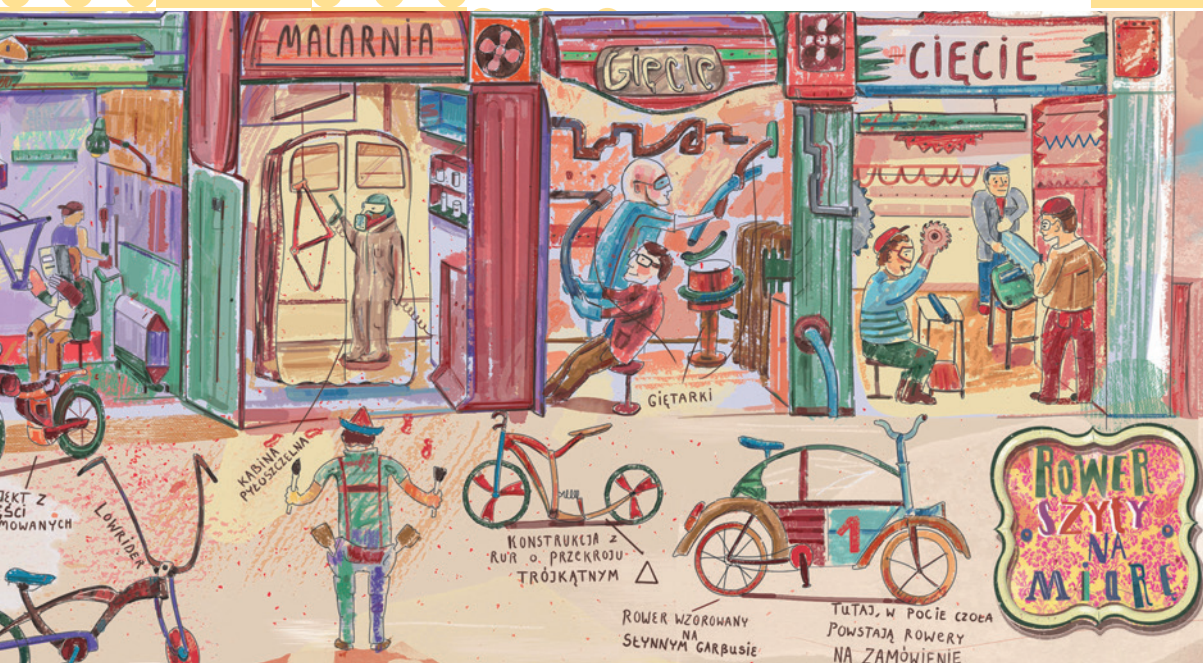 MALARNIA
GIĘCIE
CIĘCIE
GIĘTARKI
KABINA
PYŁOSZCZELNA
LOWRIDER
KONSTRUKCJA Z
RUR O PRZEKROJU
TRÓJKĄTNYM
ROWER WZOROWANY
NA
SŁYNNYM GARBUSIE
1
TUTAJ, W POCIE CZOŁA
POWSTAJĄ ROWERY
NA ZAMÓWIENIE
ROWER
SZYTY
NA
MIARĘ